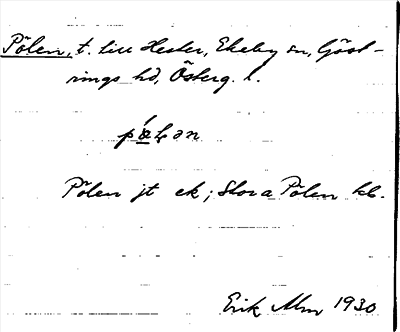 Pölen, t. till Hester, Ekeby sn, Göst-
rings hd, Österg. l.
Pölen jt ek; Stora Pölen hl.
Erik Alm 1930